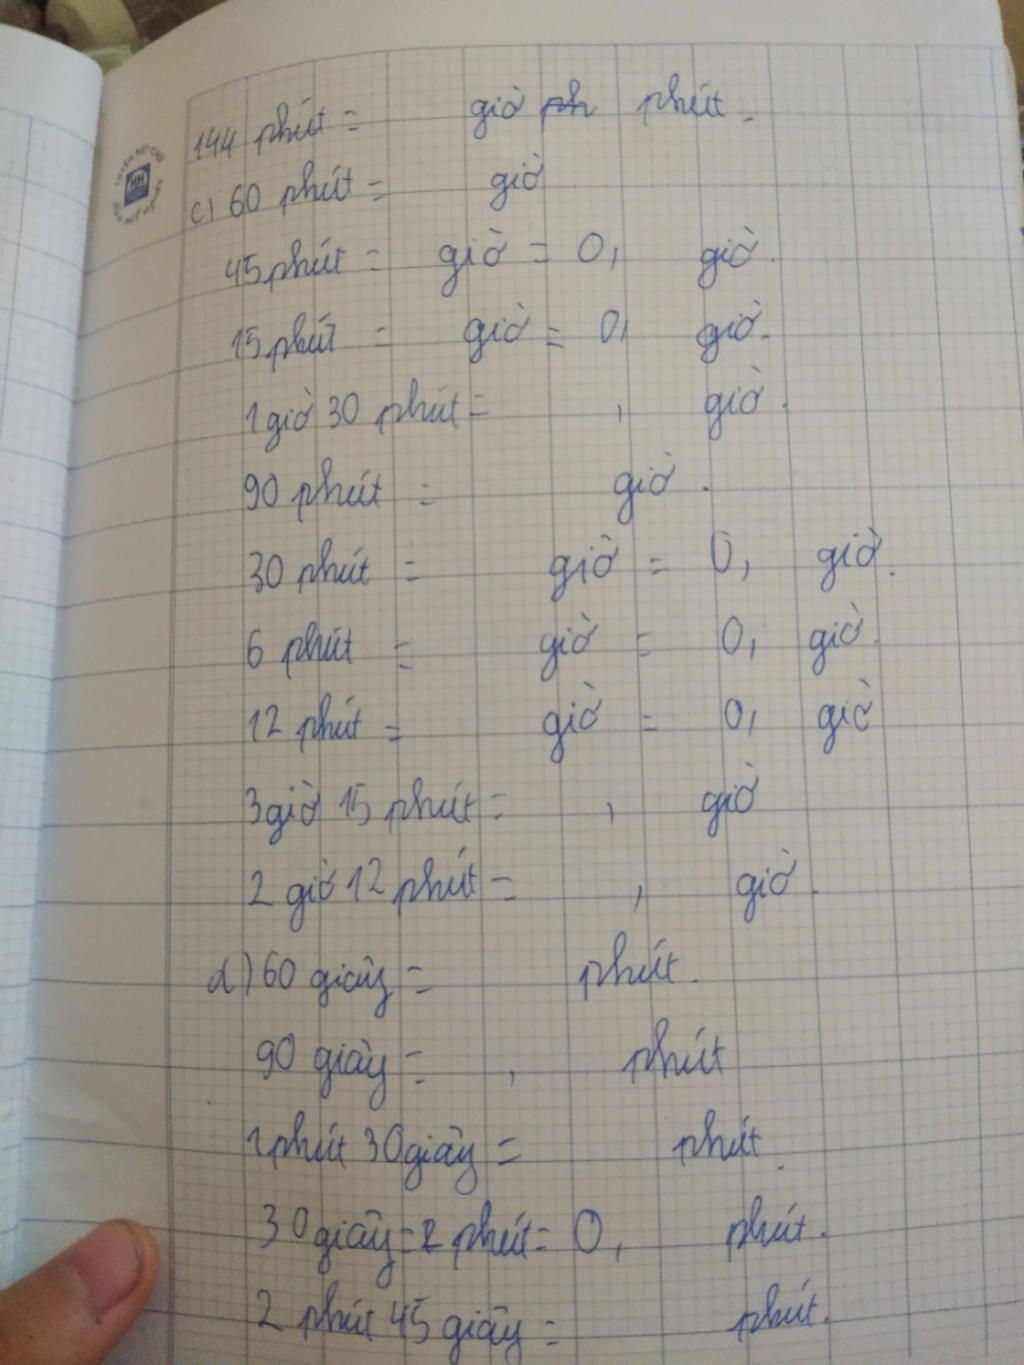 144 phút = giờ ph phút.
c) 60 phút = giờ
45 phút = giờ = 0, giờ.
15 phút = giờ = 0, giờ.
1 giờ 30 phút = , giờ.
90 phút = giờ.
30 phút = giờ = 0, giờ.
6 phút = giờ = 0, giờ.
12 phút = giờ = 0, giờ
3 giờ 15 phút = , giờ
2 giờ 12 phút = , giờ.
d) 60 giây = phút.
90 giây = , phút
1 phút 30 giây = phút.
30 giây = phút = 0, phút.
2 phút 45 giây = phút.